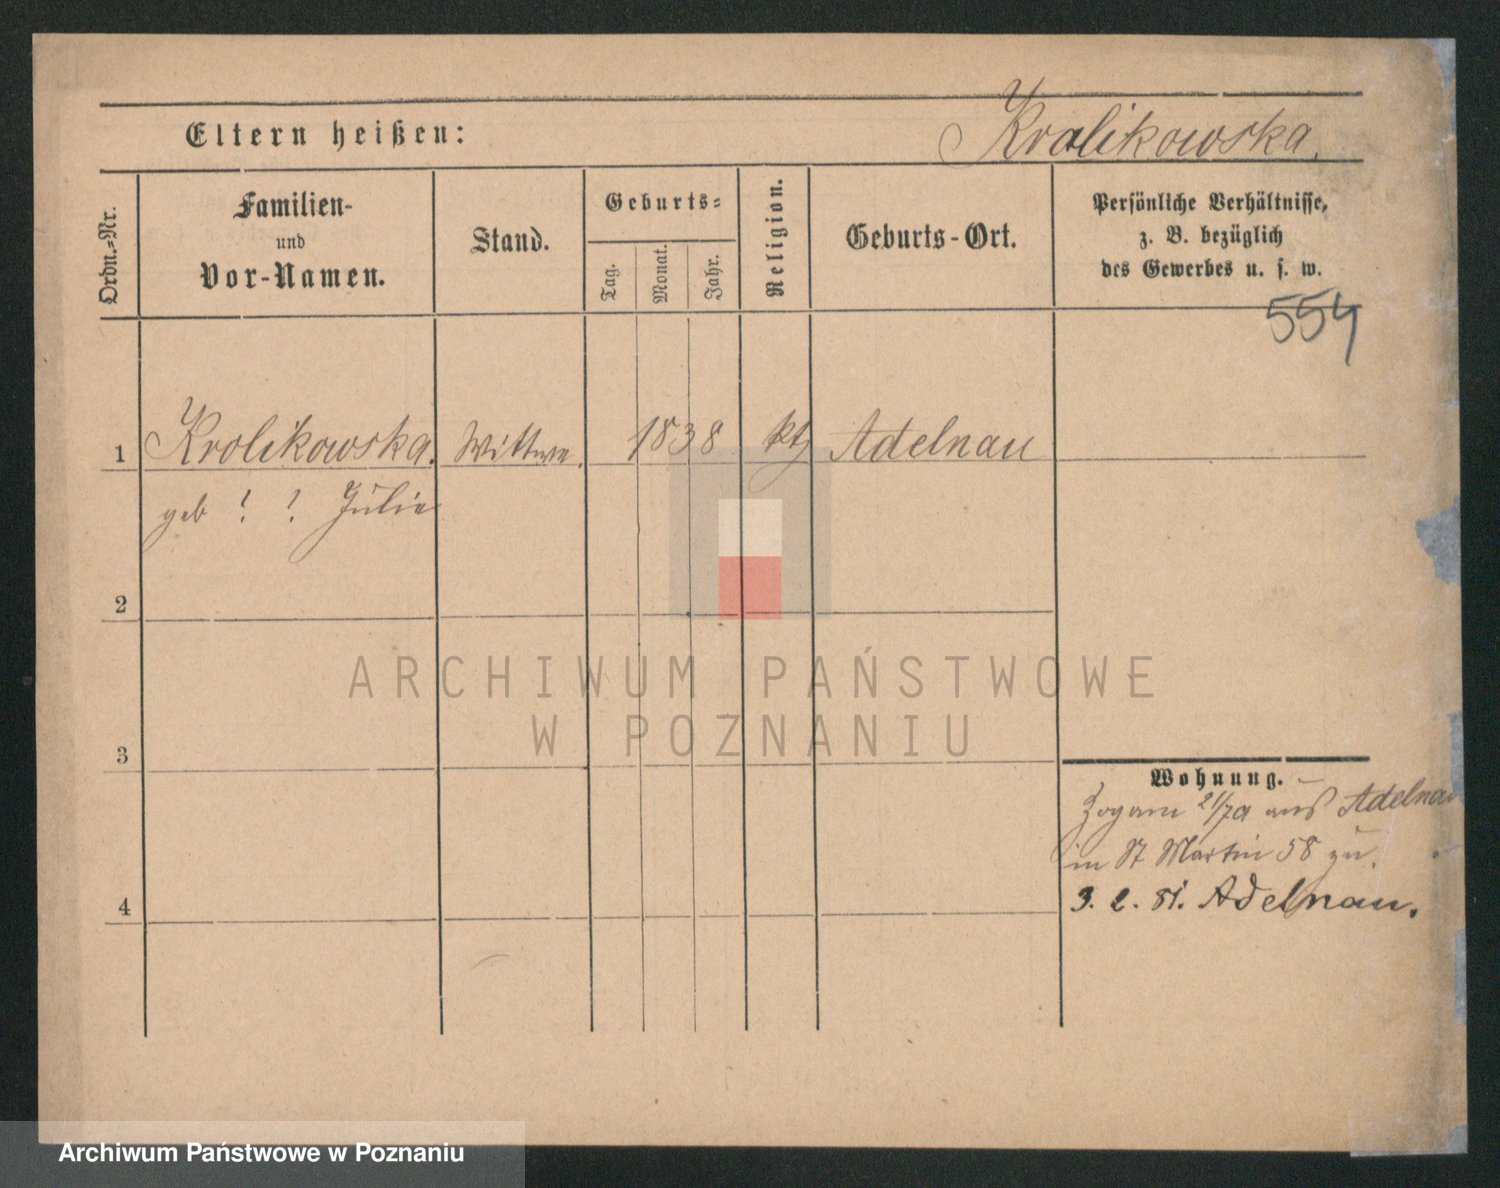 Eltern heißen:
Krolikowska.
Ordn.=Nr.
Familien-
und
Vor-Namen.
Stand.
Geburts=
Tag.
Monat.
Jahr.
Religion.
Geburts-Ort.
Persönliche Verhältnisse,
z. B. bezüglich
des Gewerbes u. s. w.
554
1 Krolikowska. Wittwe. 1838 kth Adelnau
geb ? ? Julie
2
3
4
Wohnung.
Zog am 21/7 aus Adelnau
in St Martin 58 zu.
3. 2. 81. Adelnau.
ARCHIWUM PAŃSTWOWE
W POZNANIU
Archiwum Państwowe w Poznaniu